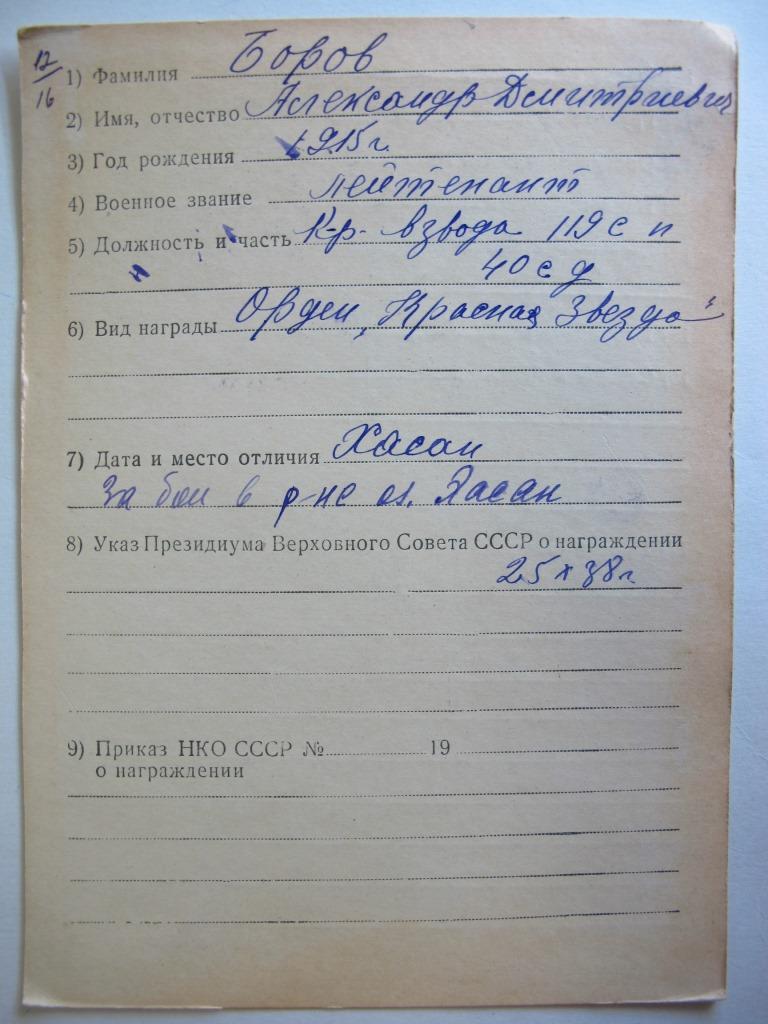 12/16
1) Фамилия Боров
2) Имя, отчество Александр Дмитриевич
3) Год рождения 1915г.
4) Военное звание лейтенант
5) Должность и часть К-р- взвода 119 с п
40 с д
6) Вид награды Орден „Красная Звезда"
7) Дата и место отличия Хасан
За бои в р-не оз. Хасан
8) Указ Президиума Верховного Совета СССР о награждении
25 X 38 г.
9) Приказ НКО СССР № 19
о награждении